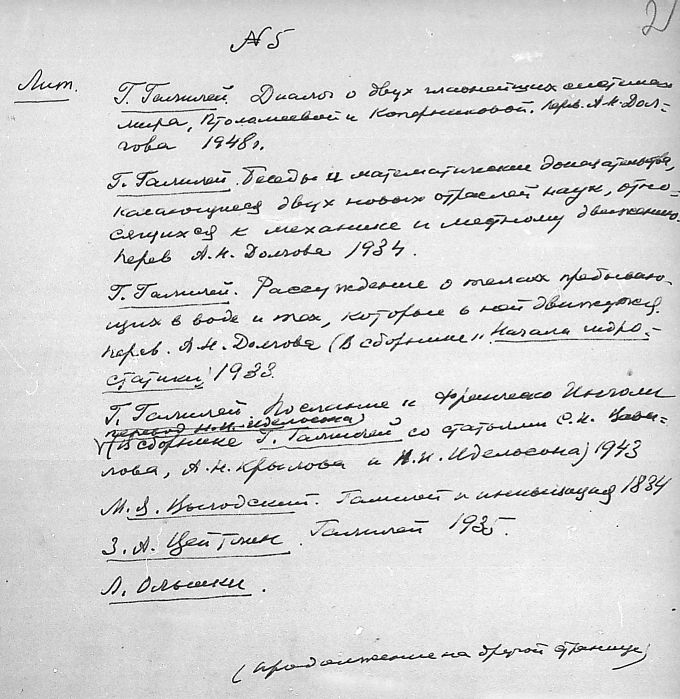 2
№ 5
Лит.
Г. Галилей. Диалог о двух главнейших системах
мира, Птоломеевой и Коперниковой. Перев. А.И. Дол-
гова 1948г.
Г. Галилей. Беседы и математические доказательства,
касающиеся двух новых отраслей наук, отно-
сящихся к механике и местному движению.
Перев А.Н. Долгова 1934.
Г. Галилей. Рассуждение о телах пребываю-
щих в воде и тех, которые в ней движутся.
Перев. А.Н. Долгова (В сборнике „Начала гидро-
статики" 1933.
Г. Галилей. Послание к Франческо Инголи
перевод Н.И. Идельсона)
(В сборнике Г. Галилей со статьями С.И. Вави-
лова, А.Н. Крылова и Н.И. Идельсона) 1943
М.Я. Выгодский. Галилей и инквизиция 1834
З. А. Цейтлин. Галилей 1935.
Л. Ольшки.
(продолжение на другой странице)